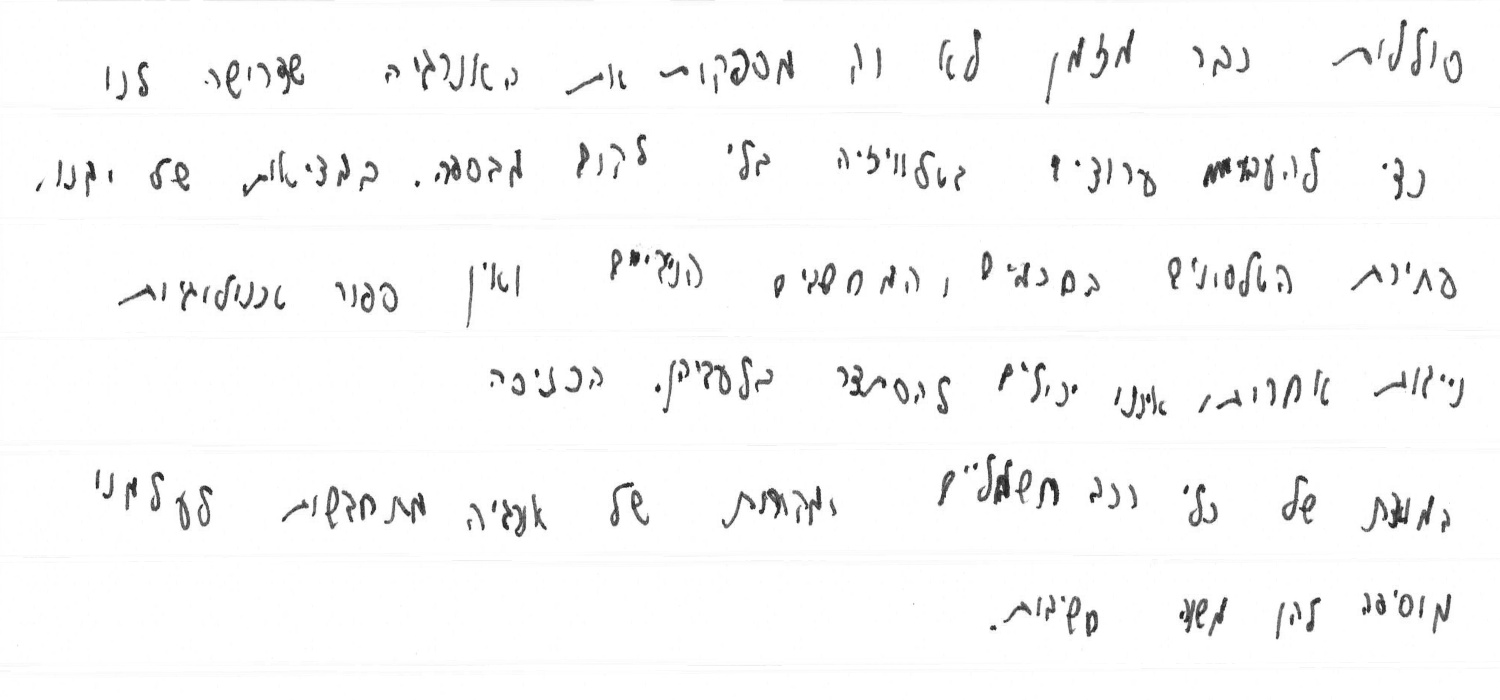 סוללות כבר מזמן לא רק מספקות את האנרגיה שדרושה לנו
כדי להעביר ערוצים בטלוויזיה בלי לקום מהספה. במציאות של ימנו,
עתירת הטלפונים החכמים, המחשבים הניידים ואין ספור טכנולוגיות
ניידות אחרות, איננו יכולים להסתדר בלעדיהן. הכניסה
המואצת של כלי רכב חשמליים ומקורות של אנרגיה מתחדשות לעולמנו
מוסיפה להן משנה חשיבות.